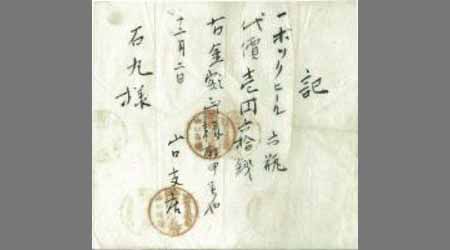 記
一ボックヒール 六瓶
代價壱円六拾銭
右金額正
十二月二日
山口支店
石丸様